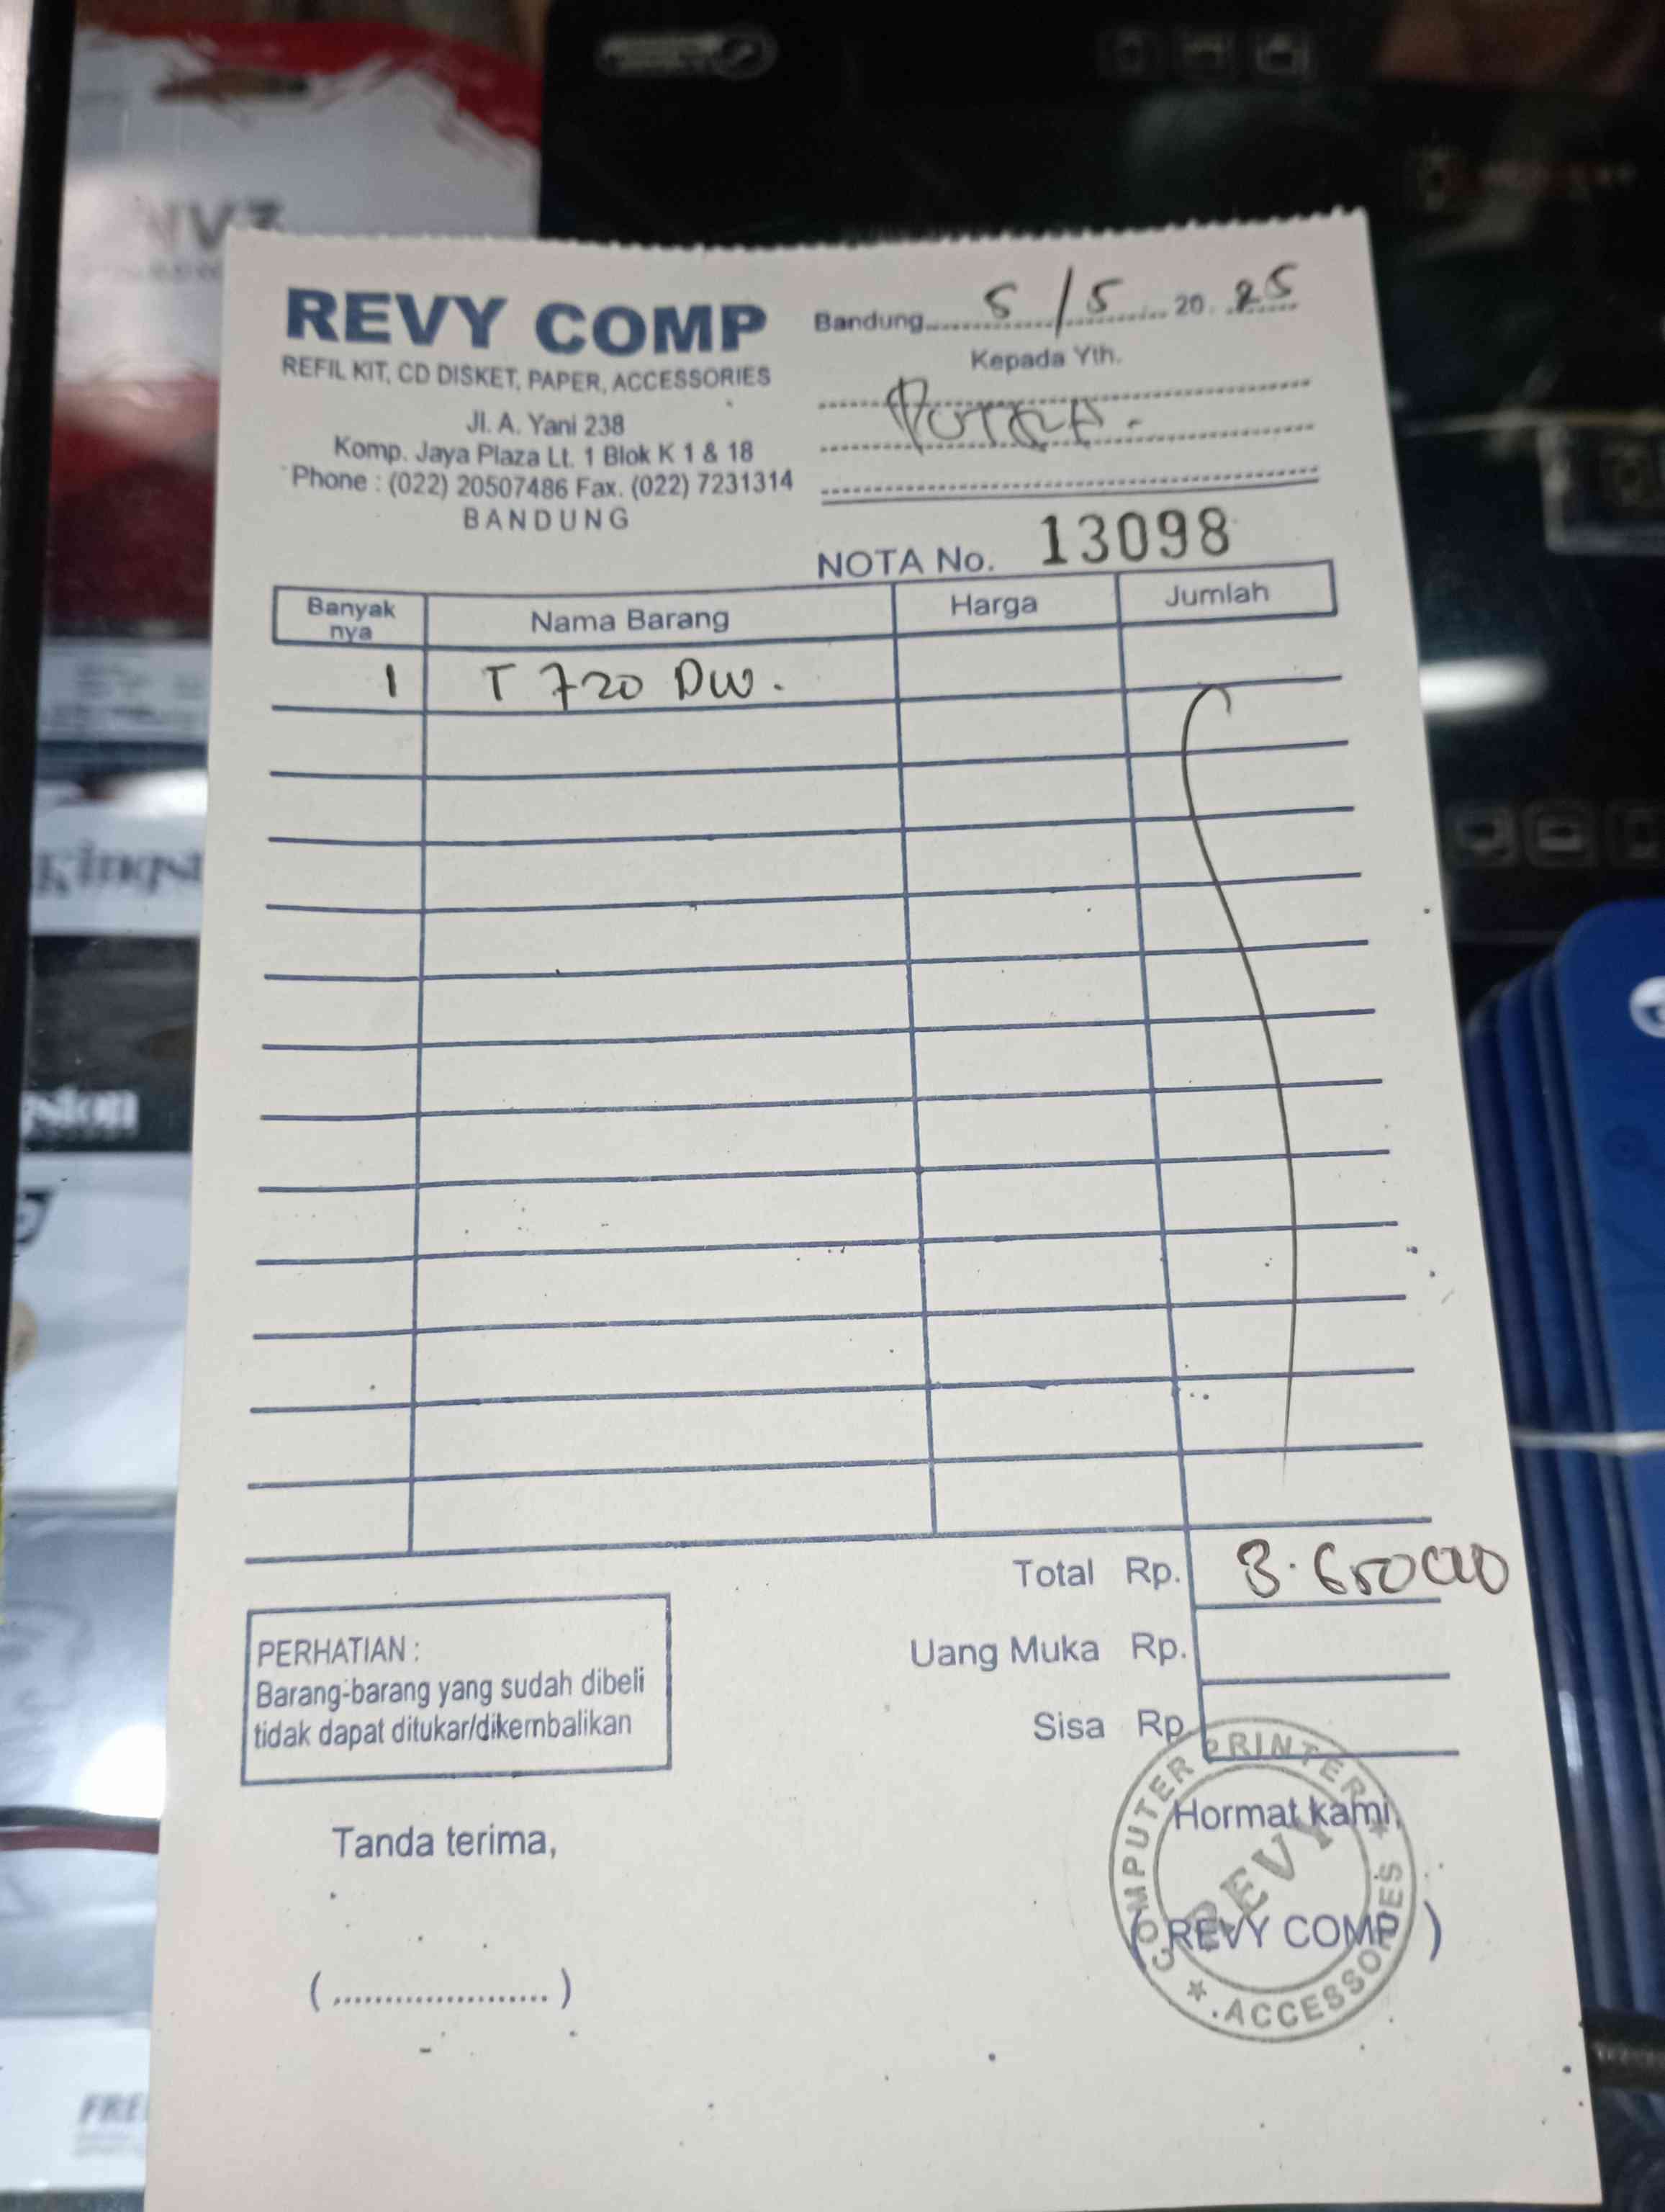 REVY COMP
REFIL KIT, CD DISKET, PAPER, ACCESSORIES
Jl. A. Yani 238
Komp. Jaya Plaza Lt. 1 Blok K 1 & 18
Phone : (022) 20507486 Fax. (022) 7231314
BANDUNG
Bandung 5/5 20 25
Kepada Yth.
PUTRA.
NOTA No. 13098
Banyak nya Nama Barang Harga Jumlah
1 T 720 DW.
Total Rp. 3.650000
Uang Muka Rp.
Sisa Rp.
PERHATIAN :
Barang-barang yang sudah dibeli
tidak dapat ditukar/dikembalikan
Tanda terima,
(.....................)
Hormat kami,
( REVY COMP )
COMPUTER PRINTER * ACCESSORIES *
REVY
Kingst
ston
FRE